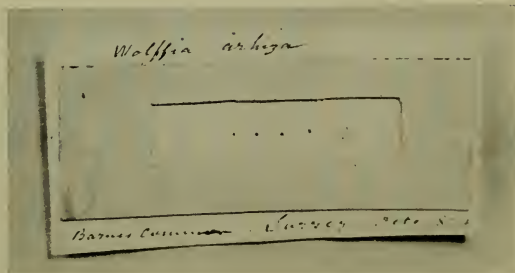 Wolffia arhiza
Barnes Common Surrey